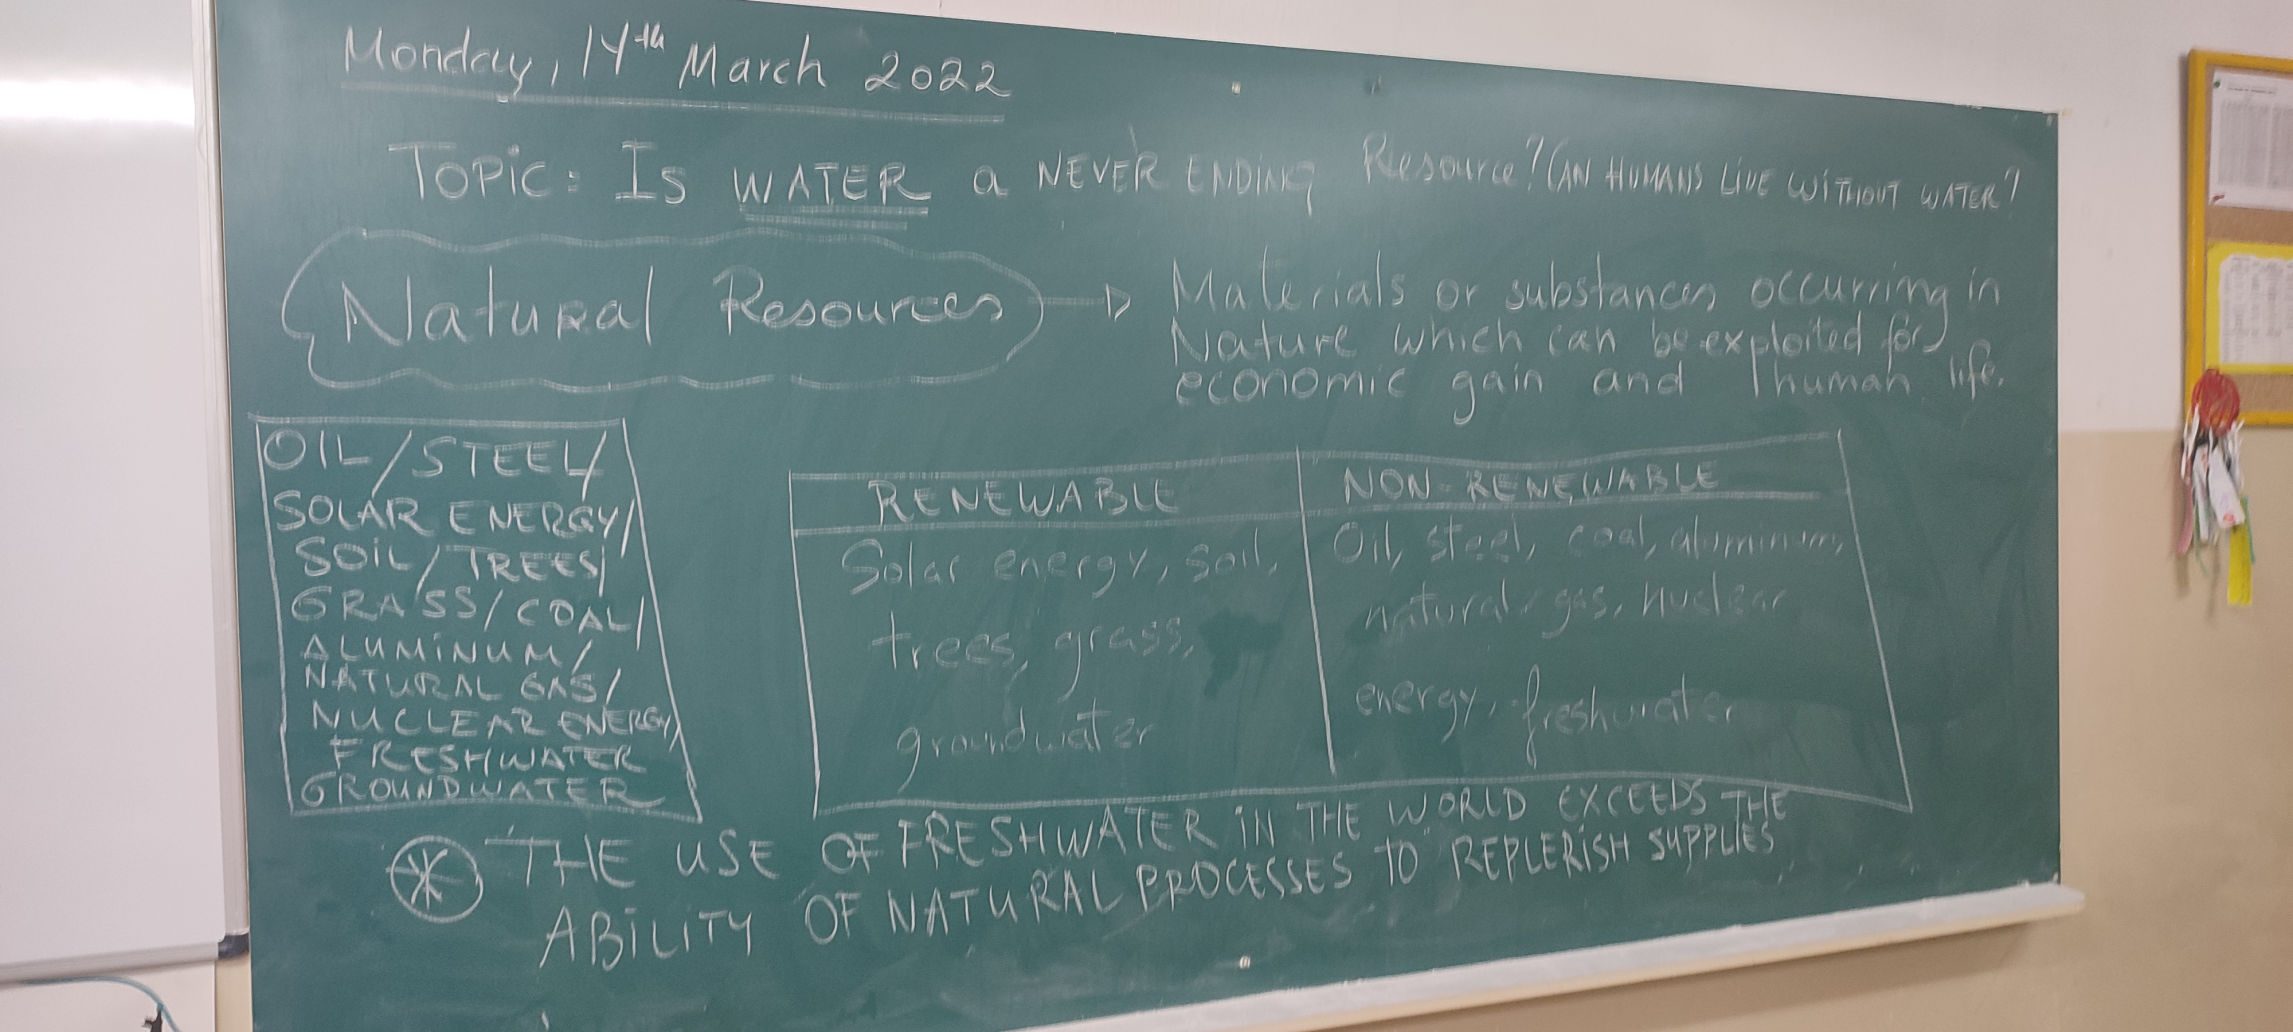 Monday, 14th March 2022
TOPIC: IS WATER a NEVER ENDING Resource? CAN HUMANS LIVE WITHOUT WATER?
Natural Resources
Materials or substances occurring in
Nature which can be exploited for
economic gain and human life.
OIL/STEEL/
SOLAR ENERGY/
SOIL/TREES/
GRASS/COAL/
ALUMINUM/
NATURAL GAS/
NUCLEAR ENERGY/
FRESHWATER
GROUNDWATER
RENEWABLE
Solar energy, soil,
trees, grass,
groundwater
NON-RENEWABLE
Oil, steel, coal, aluminum,
natural gas, nuclear
energy, freshwater
THE USE OF FRESHWATER IN THE WORLD EXCEEDS THE
ABILITY OF NATURAL PROCESSES TO REPLERISH SUPPLIES